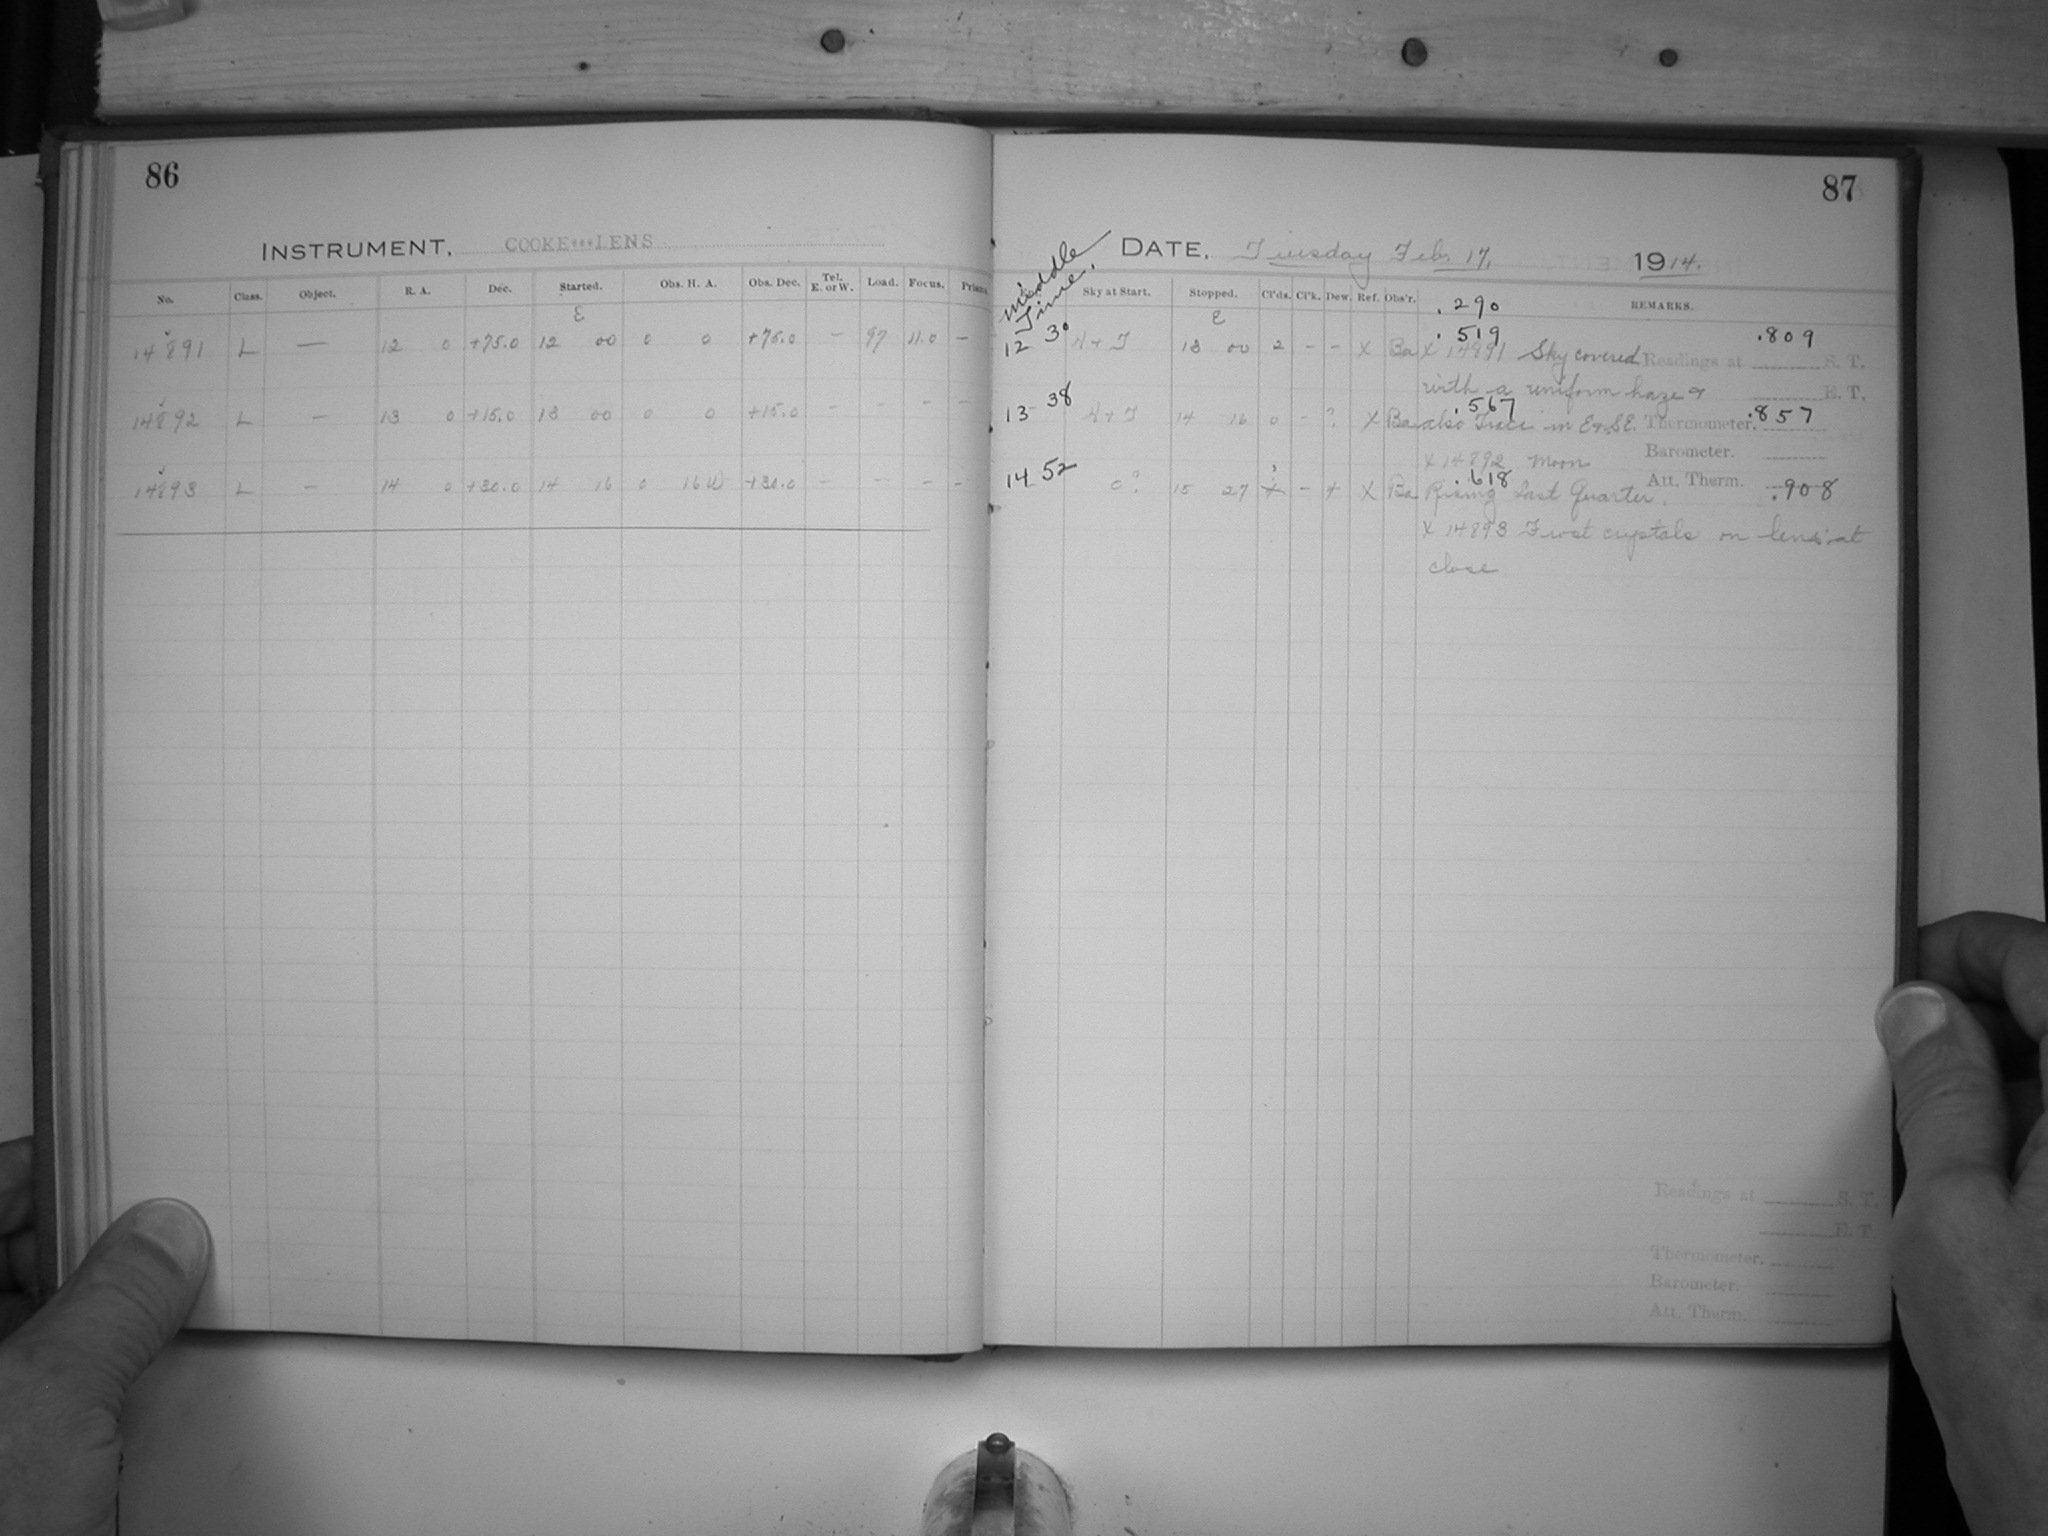 86
INSTRUMENT, COOKE LENS
No. Class. Object. R. A. Dec. Started. Obs. H. A. Obs. Dec. Tel. E. or W. Load. Focus. Prisms
E
14891 L — 12 0 +75.0 12 00 0 0 +75.0 – 97 11.0 –
14892 L – 13 0 +15.0 13 00 0 0 +15.0 – – – –
14893 L – 14 0 +30.0 14 16 0 16W +30.0 – – – –
87
Middle Time.
DATE, Tuesday Feb. 17, 1914.
Sky at Start. Stopped. Cl'ds. Cl'k. Dew. Ref. Obs'r. REMARKS.
E .290
12 30 H + T 13 00 2 – – X Ba .519 .809
X 14891 Sky covered Readings at S. T.
with a uniform haze & E. T.
13 38 H + T 14 16 0 – ? X Ba .567 .857
also Trace in E & SE. Thermometer.
X 14892 Moon Barometer.
14 52 0? 15 27 + – + X Ba .618 .908
Rising Last Quarter. Att. Therm.
X 14893 Frost crystals on lens at
close
Readings at S. T.
E. T.
Thermometer.
Barometer.
Att. Therm.